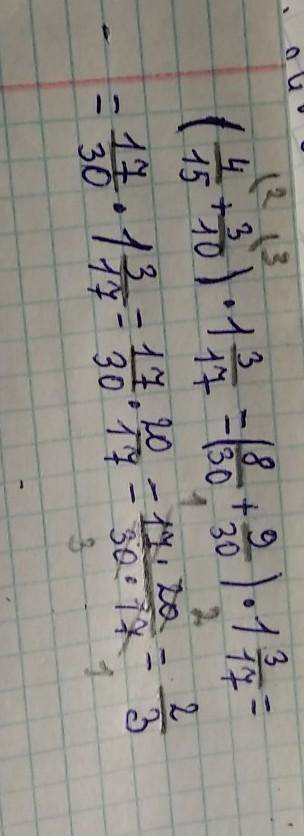 (4/15 + 3/10) · 1 3/17 = (8/30 + 9/30) · 1 3/17 =
= 17/30 · 1 3/17 = 17/30 · 20/17 = 17 · 20/30 · 17 = 2/3